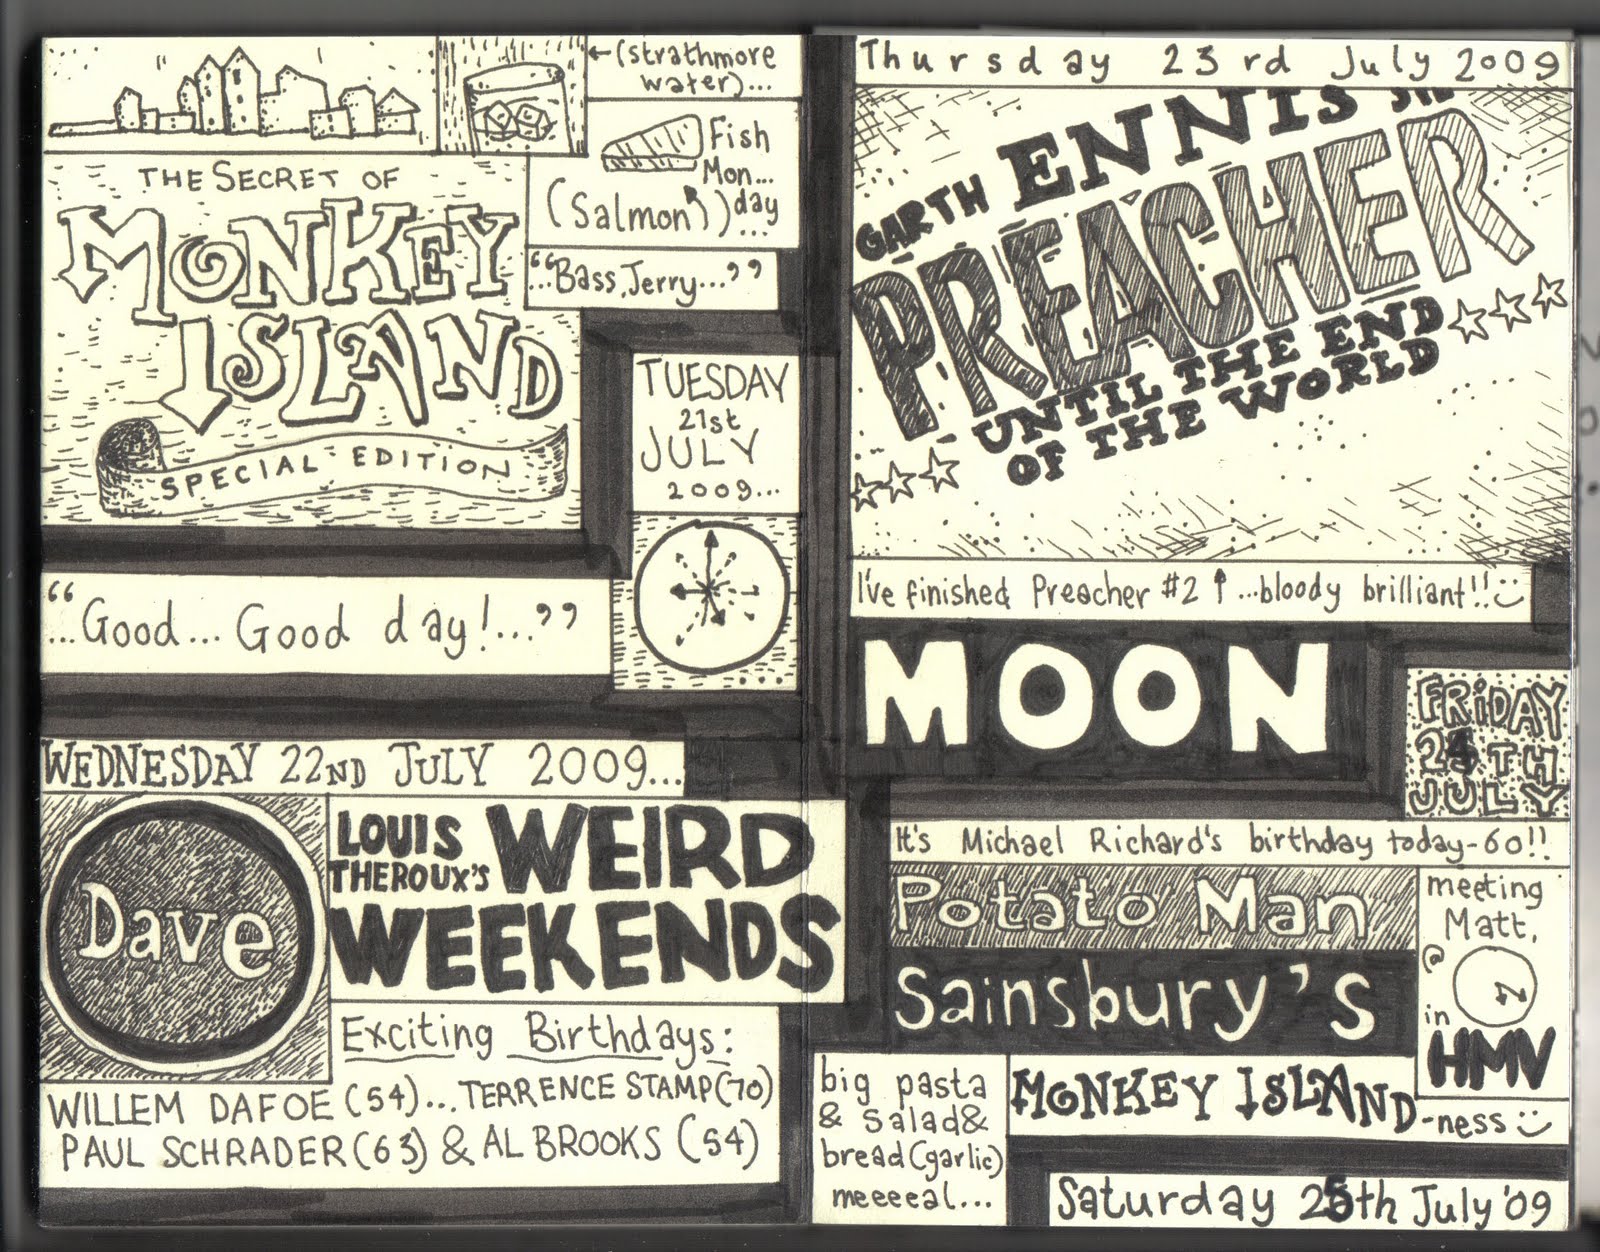 ←(strathmore
water)...
Fish
Mon...
day
...
(Salmon)
THE SECRET OF
MONKEY
ISLAND
SPECIAL EDITION
"...Bass, Jerry..."
TUESDAY
21st
JULY
2009...
"...Good... Good day!..."
WEDNESDAY 22ND JULY 2009...
Dave
LOUIS
THEROUX'S
WEIRD
WEEKENDS
Exciting Birthdays:
WILLEM DAFOE (54)... TERRENCE STAMP (70)
PAUL SCHRADER (63) & AL BROOKS (54)
Thursday 23rd July 2009
GARTH ENNIS
PREACHER
UNTIL THE END
OF THE WORLD
I've finished Preacher #2 ↑...bloody brilliant!!
MOON
FRIDAY
24TH
JULY
It's Michael Richard's birthday today-60!!
Potato Man
Sainsbury's
meeting
Matt,
@
in
HMV
MONKEY ISLAND-ness
big pasta
& salad &
bread (garlic)
meeeeal...
Saturday 25th July '09